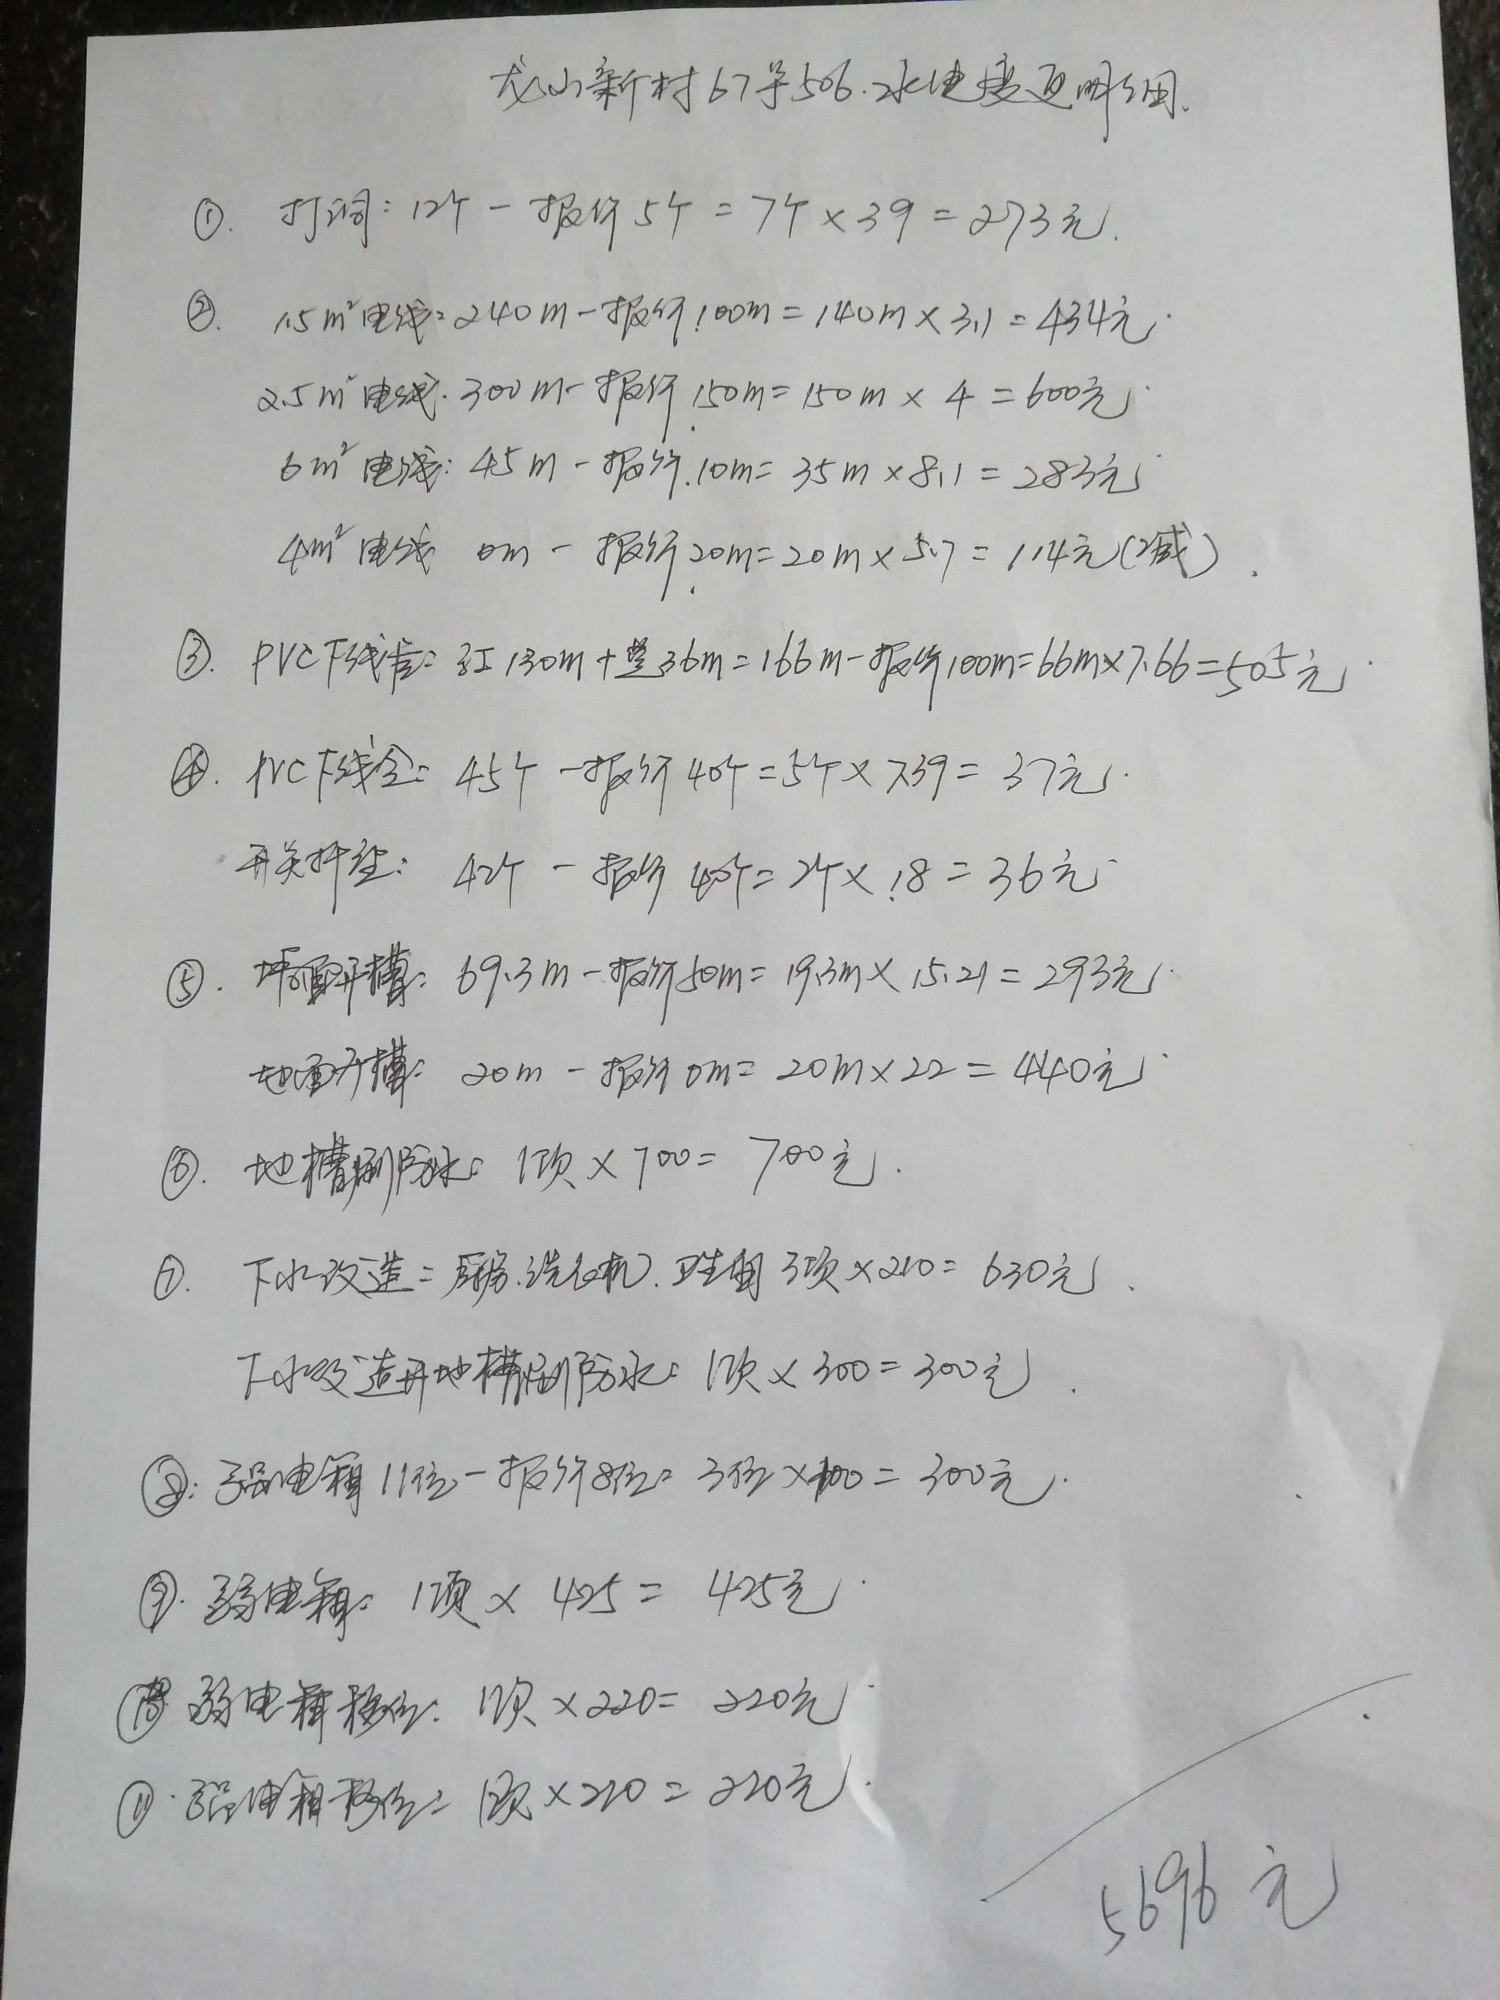 龙山新村67号506.水电变更明细.
①. 打洞:12个-报价5个=7个×39=273元.
②. 1.5m²电线:240m-报价100m=140m×3.1=434元.
2.5m²电线.300m-报价150m=150m×4=600元.
6m²电线:45m-报价.10m=35m×8.1=283元
4m²电线 0m-报价20m=20m×5.7=114元(减).
③. PVC下线管:红130m+蓝36m=166m-报价100m=66m×7.66=505元.
④. PVC下线盒:45个-报价40个=5个×7.39=37元.
开关插座:42个-报价40个=2个×18=36元
⑤. 墙面开槽:69.3m-报价50m=19.3m×15.21=293元.
地面开槽:20m-报价0m=20m×22=440元
⑥. 地槽刷防水:1项×700=700元.
⑦. 下水改造=厨房.洗衣机.卫生间3项×210=630元.
下水改造开地槽刷防水:1项×300=300元.
⑧:强电箱11位-报价8位=3位×100=300元.
⑨.弱电箱:1项×425=425元
⑩弱电箱移位:1项×220=220元
⑪.强电箱移位:1项×220=220元.
5696元